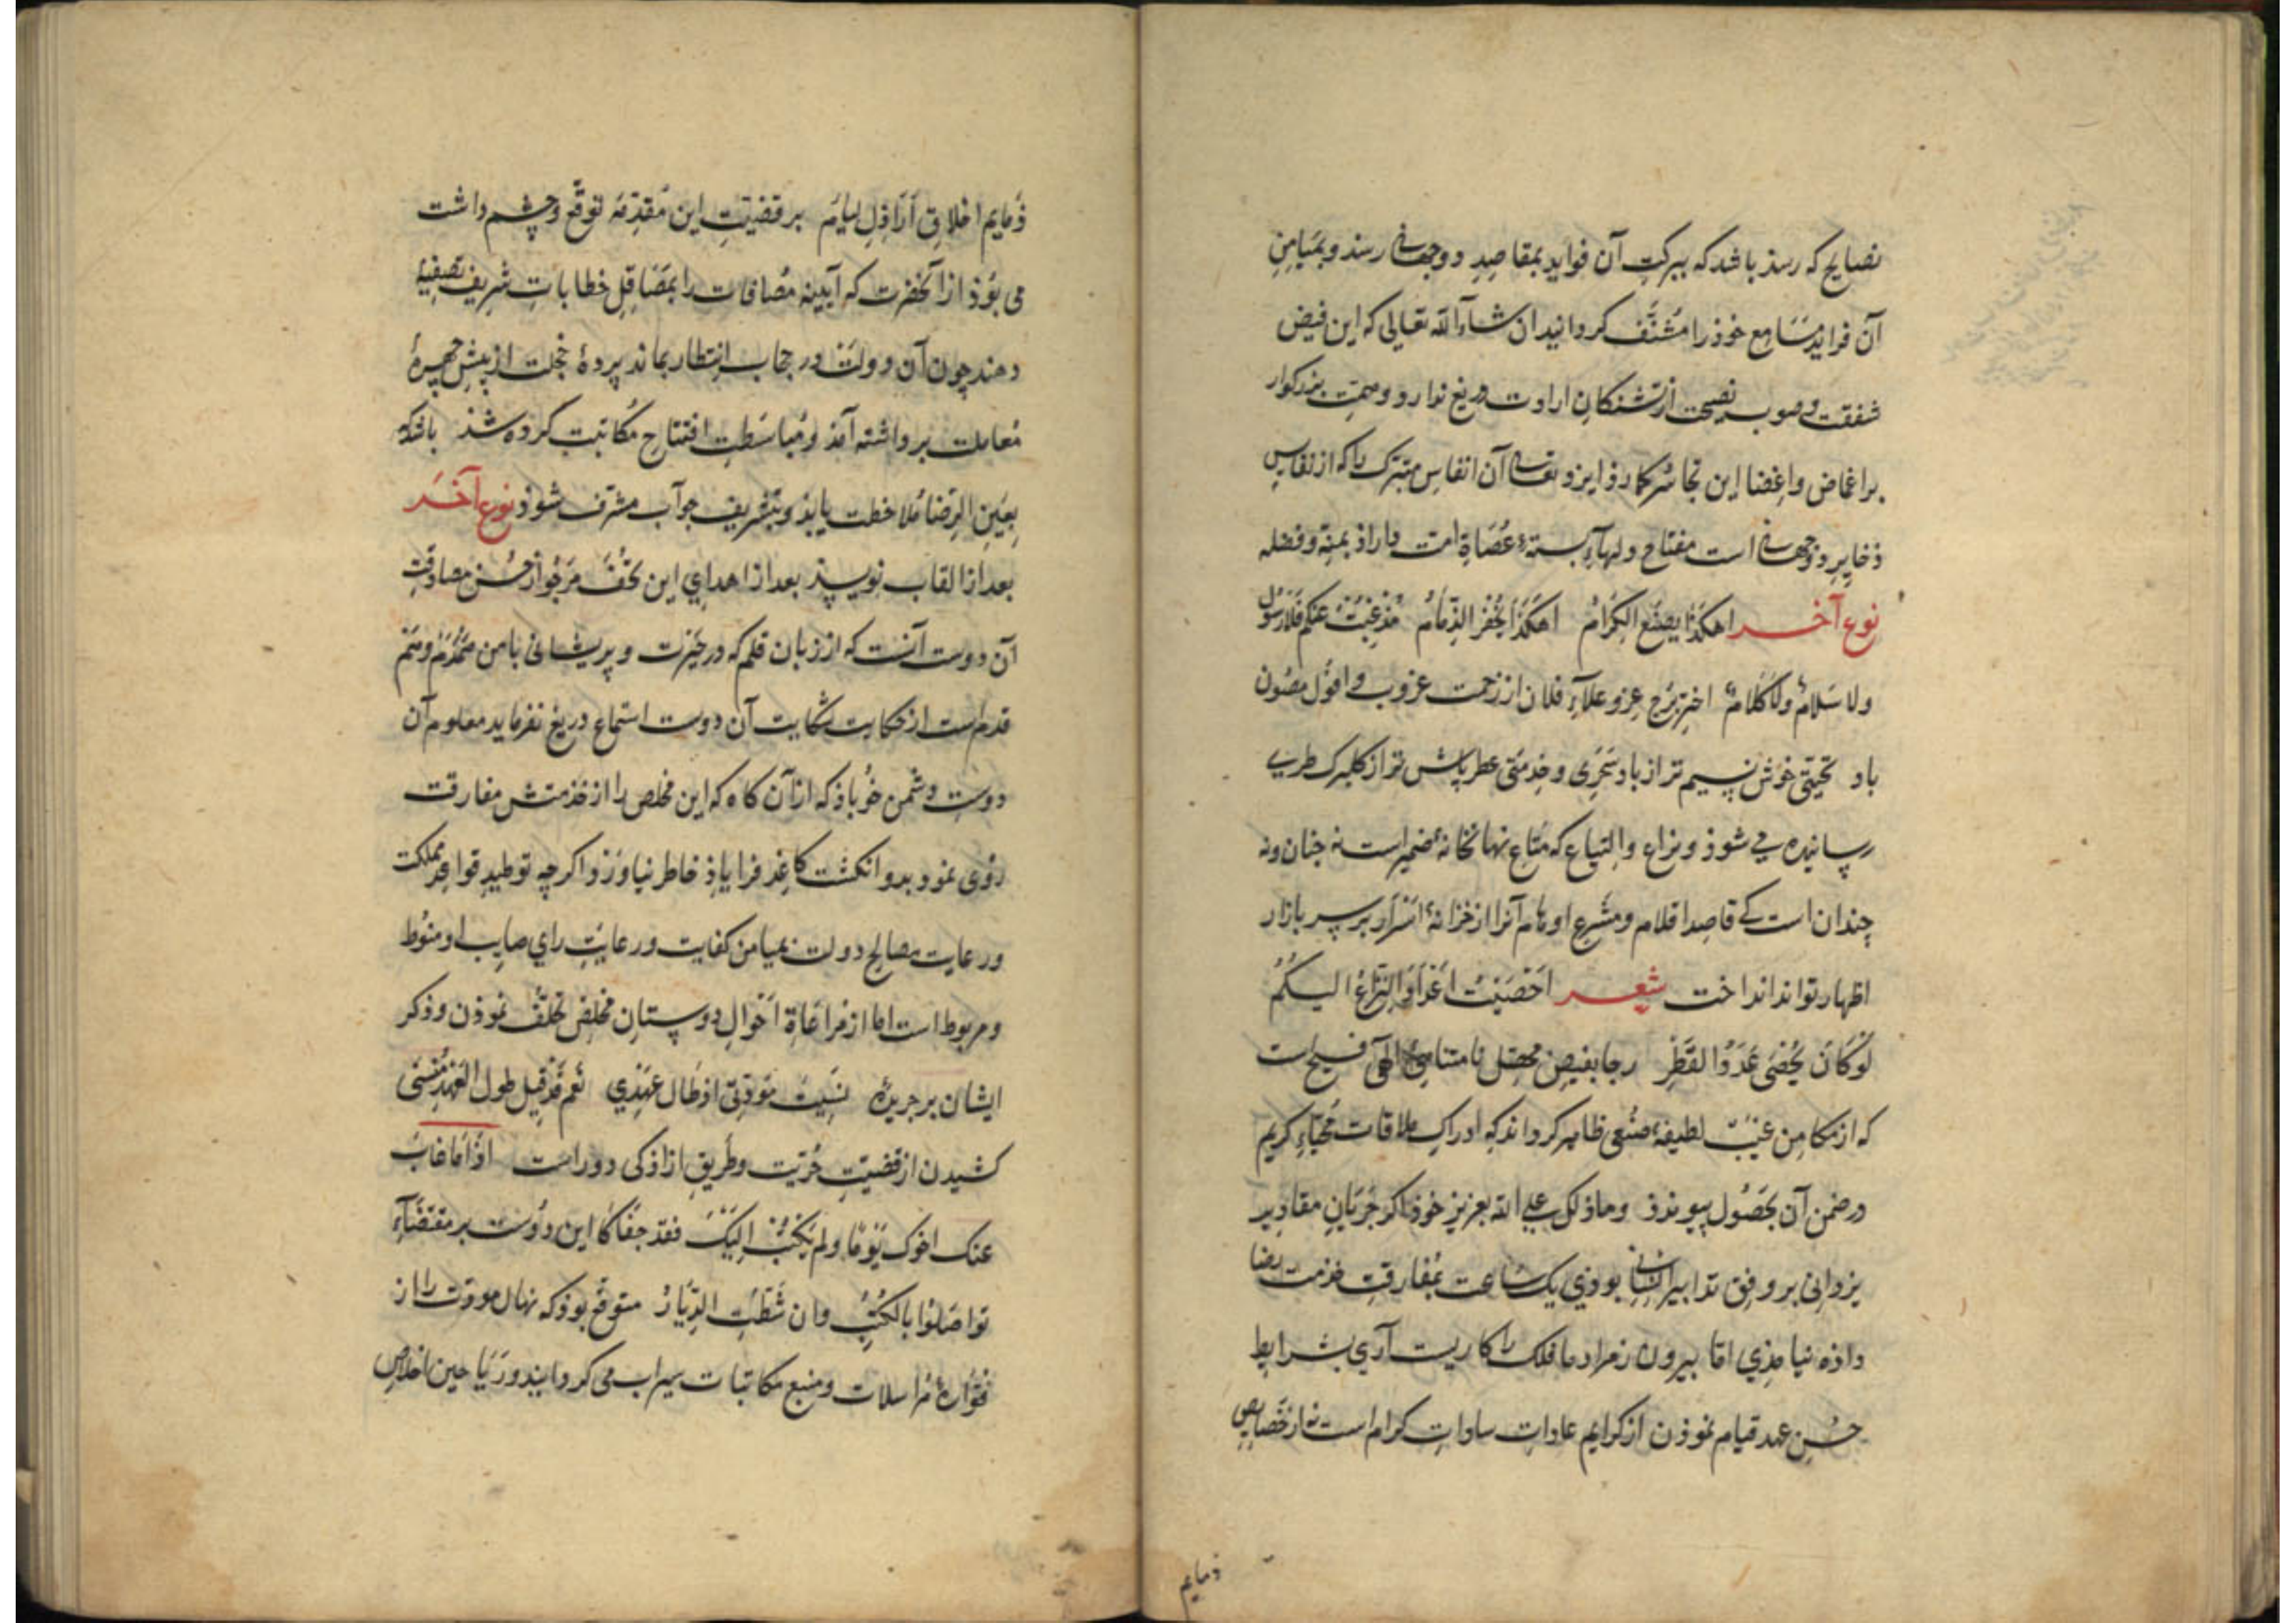 نصایح که رسد باشد که ببرکت آن فواید بمقاصد دوجهانی رسد و بمیامن
آن فراید مسامع خوذ را مشنّف کرداند ان شاء الله تعالی که این فیض
شفقت و صوب نصیحت از تشنکان ارادت دریغ ندارد و همت بزرکوار
بر اغماض و اغضا این تجاسر کمارد ایزد تعالی آن انفاس متبرک را که از نفایس
ذخایر دوجهانی است مفتاح دلهاء بسته عصاة امت داراذ بمنه و فضله
نوع آخر اهکذا یصنع الکرام اهکذا یخفر الذمام مذ غبت عنکم فلا رسول
ولا سلام ولا کلام اختر برج عز و علاء فلان از زحمت غروب و افول مصون
باد تحیتی خوش نسیم تر از باد سحری و خدمتی عطرپاش تر از کلبرک طری
رسانیده می شوذ و نزاع و التیاع که متاع نهانخانه ضمیر است نه چنان ونه
چندان است کی قاصد اقلام و مشرع اوهام آنرا از خزانه اسرار بر سر بازار
اظهار تواند انداخت شعر احصیت اعداد النزاع الیکم
لو کان یحصی عدد القطر رجا بفیض فضل نامتناهی الهی فسیح است
که از مکامن غیب لطیفه صنعی ظاهر کرداند که ادراک ملاقات محیاء کریم
در ضمن آن بحصول پیوندذ وما ذلک علی الله بعزیز خوذ اکر جریان مقادیر
یزدانی بر وفق تدابیر انسانی بوذی یک ساعت بمفارقت خدمت رضا
داذه نیامذی اما بیرون ز مراد ما فلک را کاریست آری بشرایط
حسن عهد قیام نموذن از کرایم عادات سادات کرام است نه از خصایص
ذمایم
ذمایم اخلاق اراذل لیام بر قضیت این مقدمه توقع و چشم داشت
می بوذ از آنحضرت که آیینه مصافات را بمصاقل خطابات شریف تصفیه
دهند چون آن دولت در حجاب انتظار بماند پرده خجلت از پیش چهره
معاملت برداشته آمذ و مباسطت افتتاح مکاتبت کرده شذ باشد که
بعین الرضا ملاحظت یابذ و بتشریف جواب مشرف شوذ نوع آخر
بعد از القاب نویسند بعد از اهدای این تحف مرجو از حسن مصادقت
آن دوست آنست که از زبان قلم که در حیرت و پریشانی با من همدم و هم
قدم است از حکایت شکایت آن دوست استماع دریغ نفرماید معلوم آن
دوست دشمن خو باذ که از آن کاه که این مخلص را از خدمتش مفارقت
روی نمود بدو انکشت کاغذ فرا یاذ خاطر نیاورد و اکر چه توطید قواعد مملکت
و رعایت مصالح دولت بمیامن کفایت و رعایت رای صایب او منوط
و مربوط است اما از مراعاة احوال دوستان مخلص تخلف نموذن و ذکر
ایشان بر جریده نسیت مودتی اذ طال عهدی نعم قد قیل طول العهد منسی
کشیدن از قضیت حریت و طریق ازاذکی دور است اذا ما غاب
عنک اخوک یوما ولم یکتب الیک فقد جفاکا این دوست بر مقتضاء
تواصلوا بالکتب وان شطت الدیار متوقع بوذ که نهال مودت را از
فواره مراسلات و منبع مکاتبات سیراب می کردانید و ریاحین اخلاص